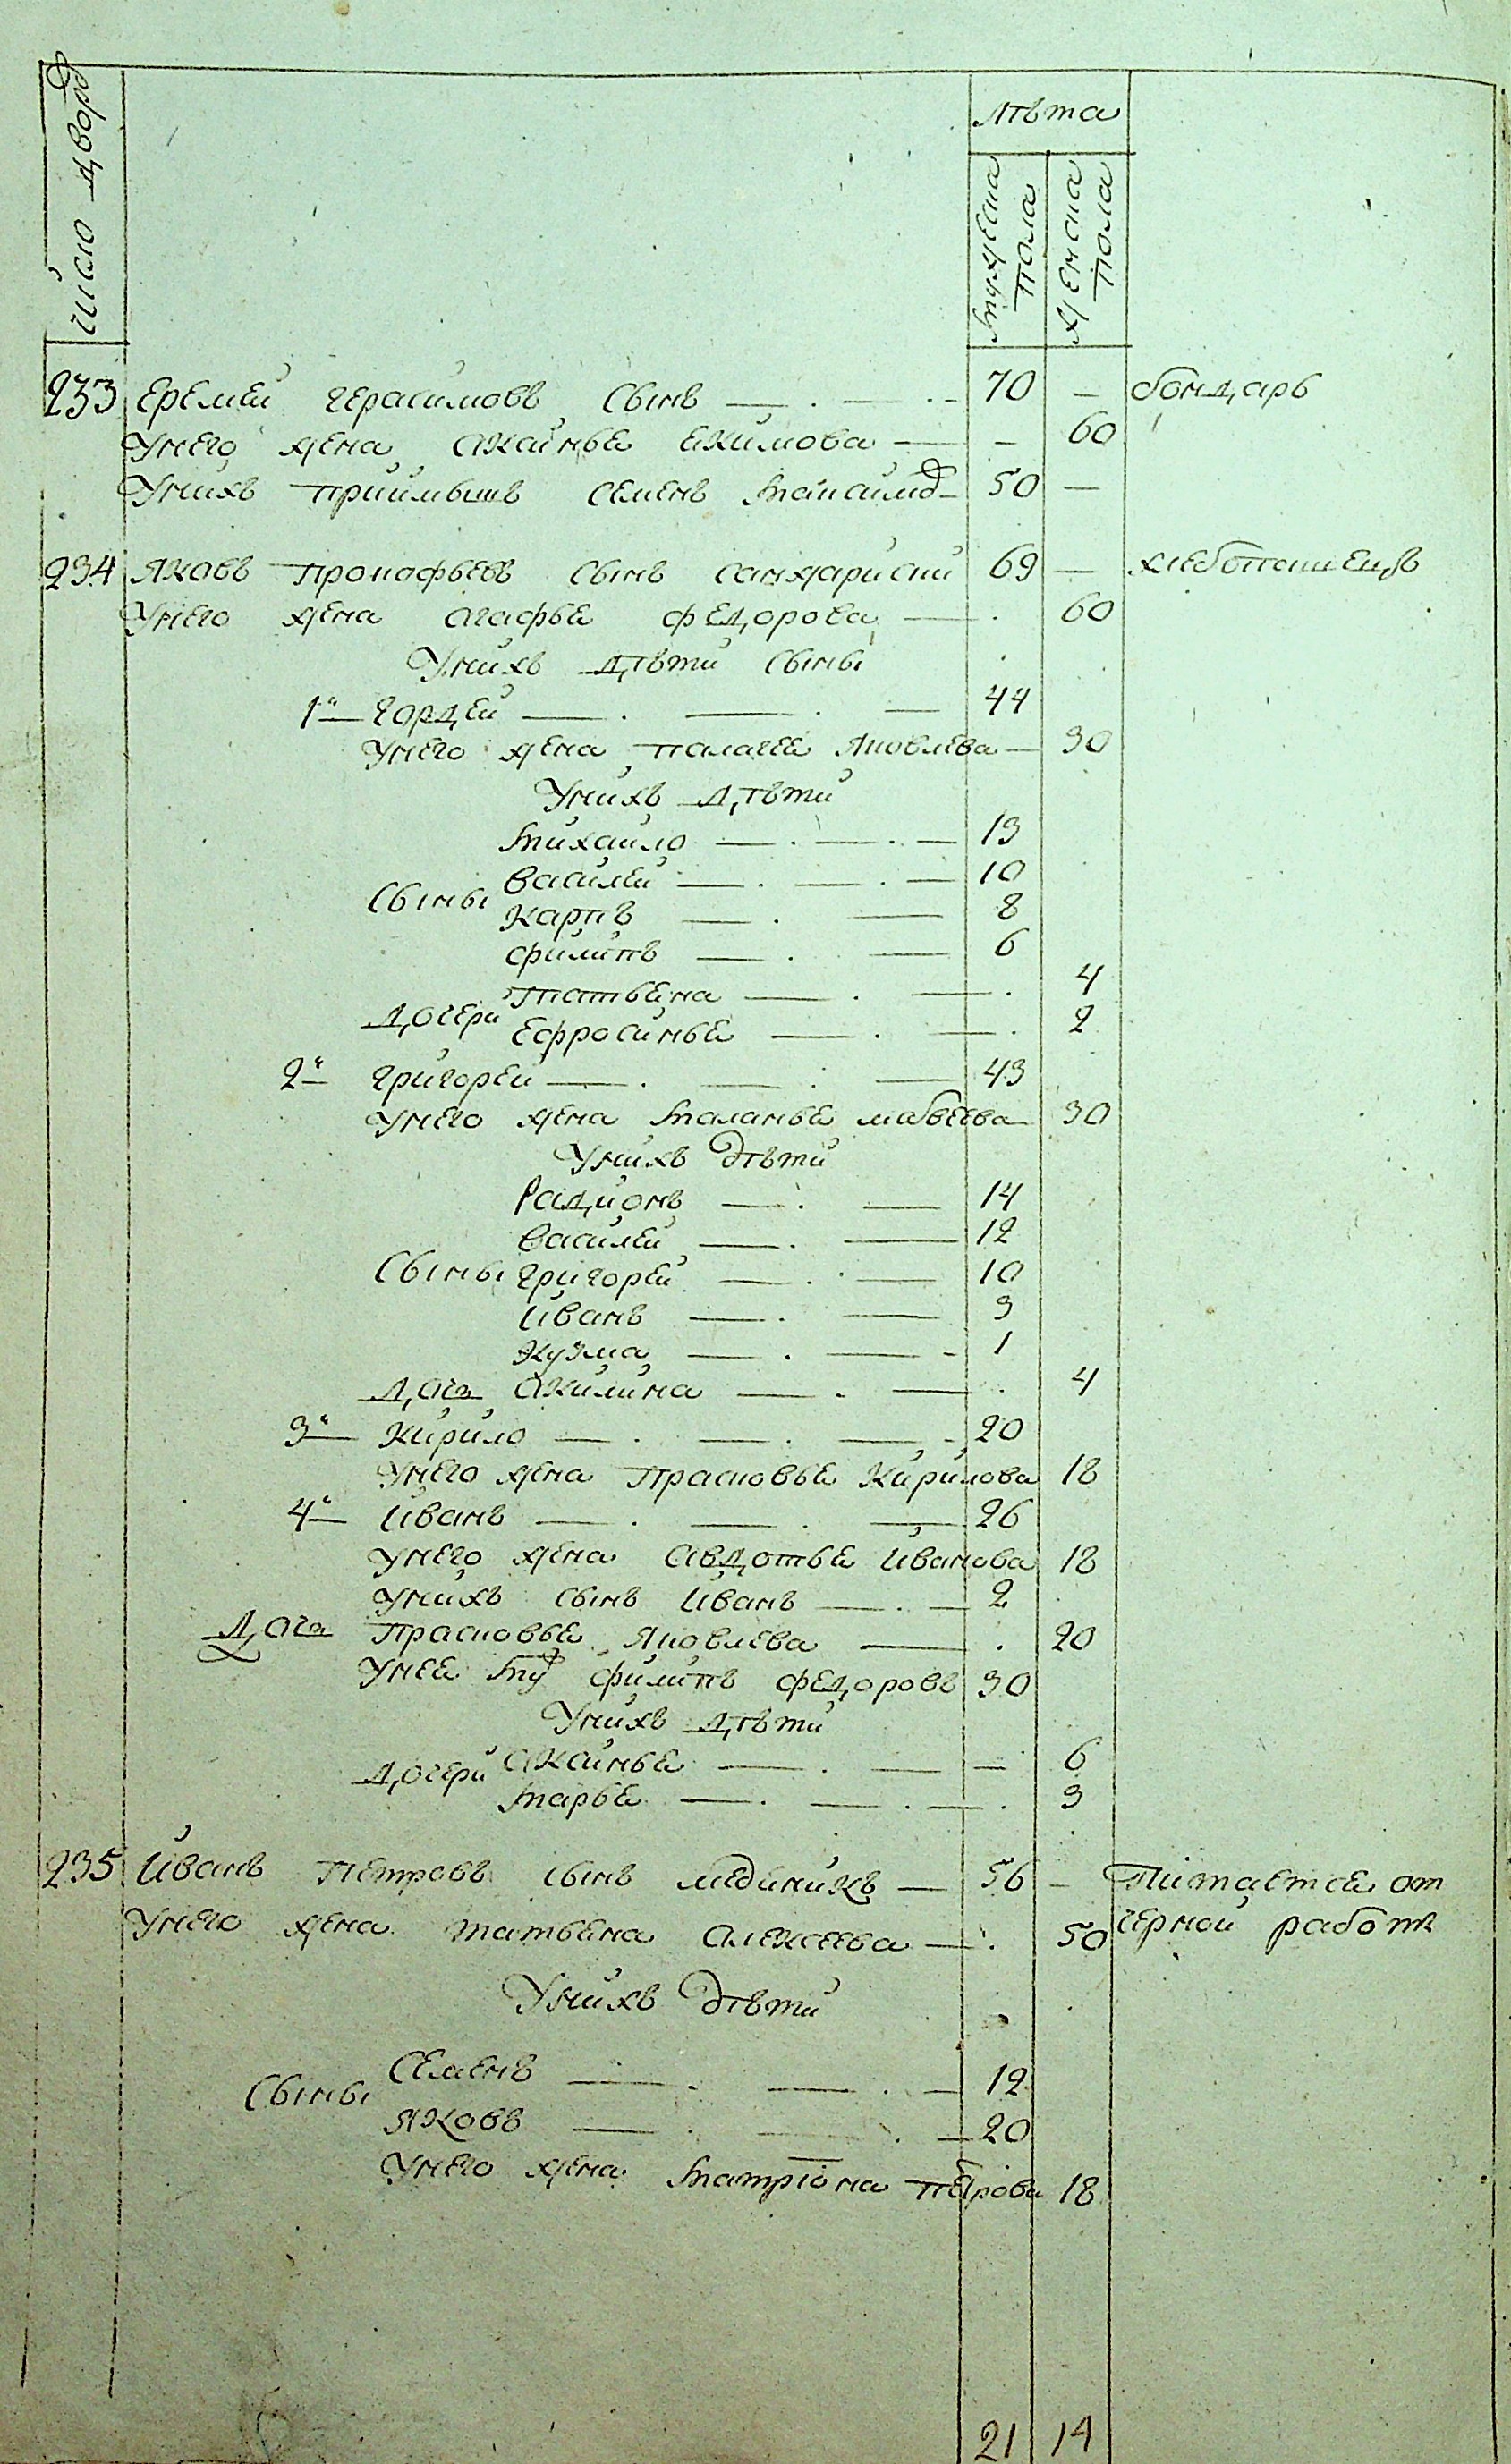 число дворо
лѣта
мужеска пола
женска пола
233 Еремей Герасимовъ сынъ — 70 — бондарь
У него жена Аксинья Екимова — — 60
У нихъ приймышъ Семенъ 50 —
234 Яковъ Прокофьевъ сынъ Санжариский 69 — хлебопашецъ
У него жена Агафья Федорова — 60
У нихъ дѣти сыны
1й Гордей — 44
У него жена Палагея Яковлева — 30
У нихъ дѣти
Михайло — 13
Василей — 10
сыны
Карпъ — 8
Филипъ — 6
Татьяна — 4
дочери
Ефросинья — 2
2й Григорей — 43
У него жена Маланья Мавеева 30
У нихъ дѣти
Радионъ — 14
Василей — 12
сыны Григорей — 10
Иванъ — 3
Кузма — 1
дочь Акилина — 4
3й Кирило — 20
У него жена Прасковья Кирилова 18
4й Иванъ — 26
У него жена Авдотья Иванова 18
У нихъ сынъ Иванъ — 2
дочь Прасковья Яковлева — 20
У нея му Филипъ Федоровъ 30
У нихъ дѣти
дочери Аксинья — — 6
Марья — 3
235 Иванъ Петровъ сынъ Медникъ — 56 — Питается от
У него жена Татьяна Алексеева — 50 черной работы
У нихъ дѣти
Семенъ — 12
сыны
Яковъ — 20
У него жена Матрiона Петрова 18
21 14